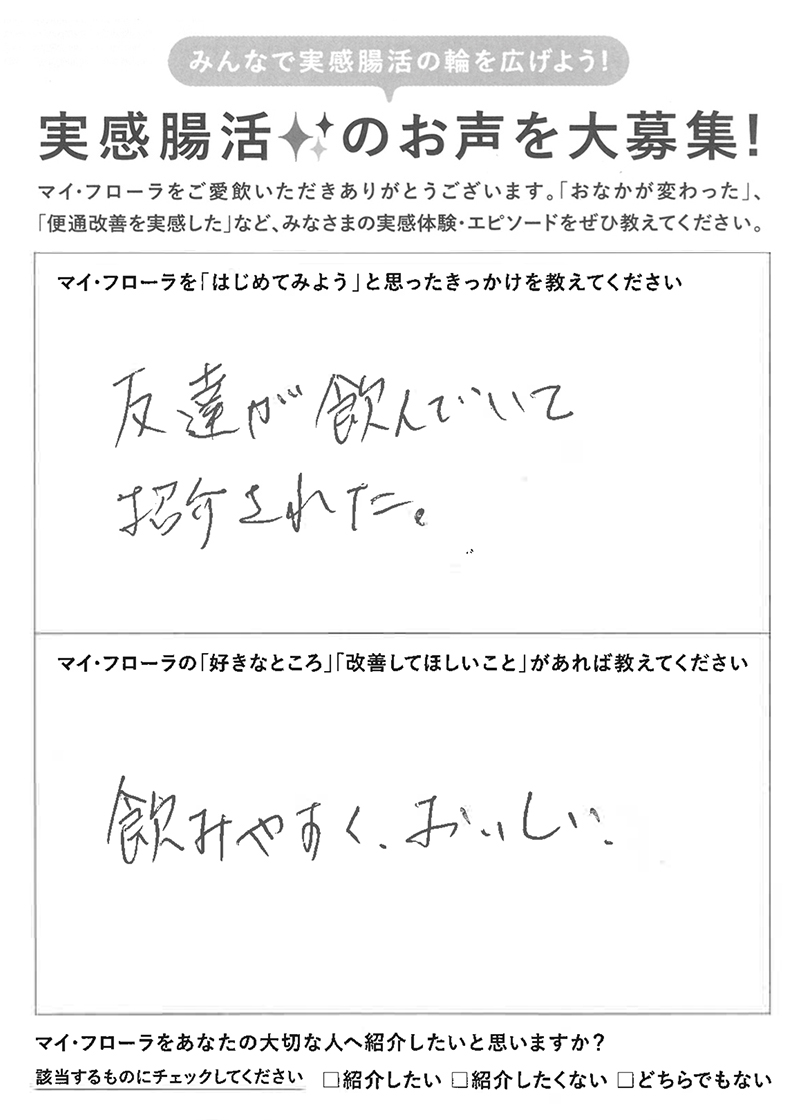 みんなで実感腸活の輪を広げよう!
実感腸活のお声を大募集!
マイ・フローラをご愛飲いただきありがとうございます。「おなかが変わった」、
「便通改善を実感した」など、みなさまの実感体験・エピソードをぜひ教えてください。
マイ・フローラを「はじめてみよう」と思ったきっかけを教えてください
友達が飲んでいて
紹介された。
マイ・フローラの「好きなところ」「改善してほしいこと」があれば教えてください
飲みやすく、おいしい。
マイ・フローラをあなたの大切な人へ紹介したいと思いますか?
該当するものにチェックしてください □紹介したい □紹介したくない □どちらでもない